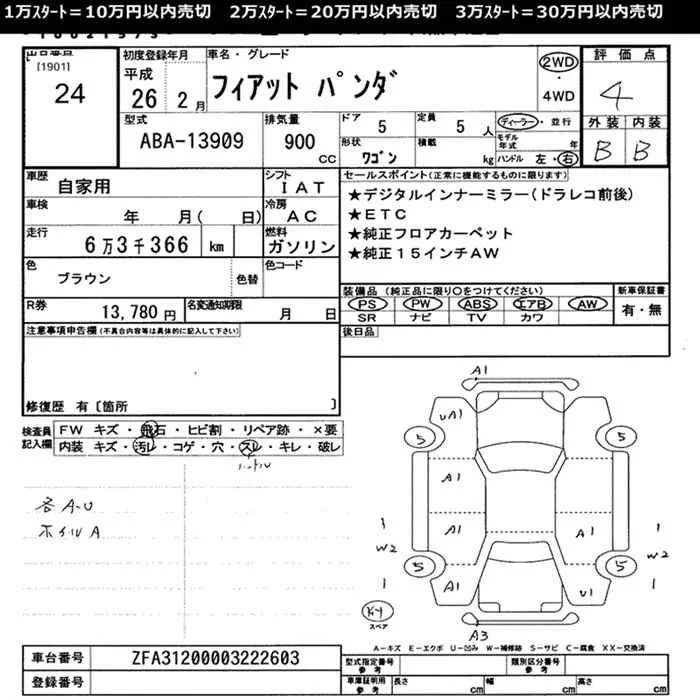 1万スタート＝10万円以内売切　2万スタート＝20万円以内売切　3万スタート＝30万円以内売切
出品番号
[1901]
24
初度登録年月
平成
26 2月
車名・グレード
フィアット パンダ
2WD
・
4WD
評価点
4
外装 内装
B B
型式
ABA-13909
排気量
900
CC
ドア
5
定員
5 人
形状
ワゴン
積載
kg
ディーラー・並行
モデル年式 年
ハンドル 左・右
車歴
自家用
シフト
IAT
車検
年 月( 日)
冷房
AC
走行
6万3千366 km
燃料
ガソリン
色
ブラウン
色替
色コード
R券
13,780 円
名変通知期限
月 日
セールスポイント(正常に機能するものに限ります)
★デジタルインナーミラー(ドラレコ前後)
★ETC
★純正フロアカーペット
★純正15インチAW
装備品(純正品に限り○をつけてください)
PS PW ABS エアB AW
SR ナビ TV カワ
新車保証書
有・無
後日品
注意事項申告欄(不具合内容等は具体的に記入して下さい)
修復歴 有〔箇所 〕
検査員
記入欄
FW キズ・飛石・ヒビ割・リペア跡・×要
内装 キズ・汚レ・コゲ・穴・スレ・キレ・破レ
各A-U
ホイールA
A1
UA1
5 5
A1
A1 A1
W2 W2
5 5
A1 U1
スペア
A3
A－キズ E－エクボ U－凹み W－補修跡 S－サビ C－腐食 XX－交換済
車台番号
ZFA31200003222603
登録番号
型式指定番号
参考
類別区分番号
参考
車庫証明用
参考
長さ cm 幅 cm 高さ cm